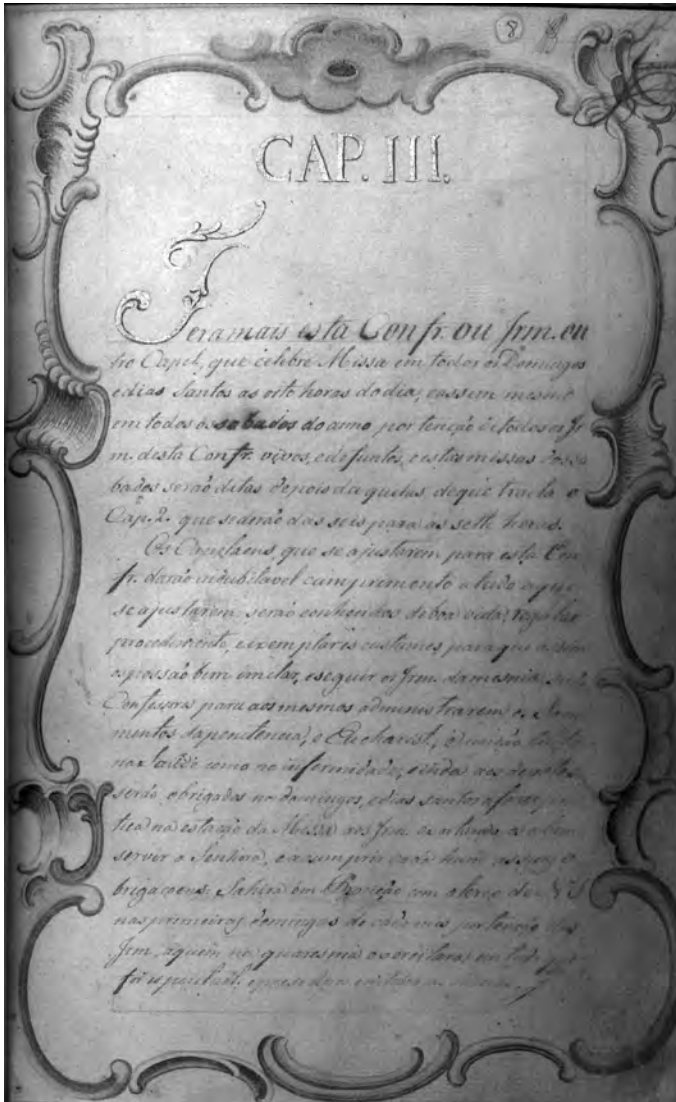 8
CAP. III.
Terá mais esta Confr. ou Irm. ou
tro Capel, que celebre Missa em todos os Domingos
e dias Santos as oito horas do dia, e assim mesmo
em todos os sabados do anno, por tenção de todos os Ir
m. desta Confr. vivos, e defuntos, e estas missas dos sa
bados serão ditas depois daquelas de que tracta o
Cap. 2. que se dirão das seis para as sette horas.
Os Capelaens, que se ajustarem para esta Con
fr. darão indubitavel cumprimento a tudo a que
se ajustarem: serão conhecidos de boa vida, regular
procedimento, e exemplares custumes para que assim
os possão bem imitar, e seguir os Irm. da mesma,
Confessores para aos mesmos administrarem os
mentos da penitencia, e Eucharest,
na saude como na infermidade, e
serão obrigados nos domingos, e dias santos a fazer
tica na estação da Missa aos Irm.
servir a Senhora, e a cumprir cada hum as suas o
brigaçoens. Sahirá em Procição com o terço de N. S.
nas primeiras domingas de cada mes por tenção dos
Irm. a quem na quaresma exercitará em tudo que
for espiritual